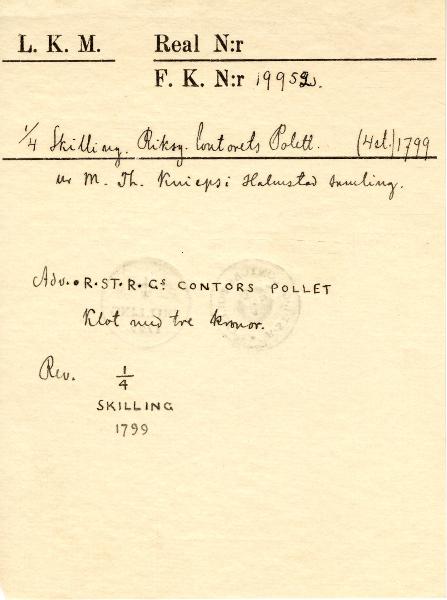 L. K. M. Real N:r
F. K. N:r 19952.
1/4 Skilling. Riksg. Contorets Polett. (4 st.) 1799
ur M. Th. Knieps i Halmstad samling.
Adv. • R • ST • R • Gˢ CONTORS POLLET
Klot med tre kronor.
Rev. 1/4
SKILLING
1799